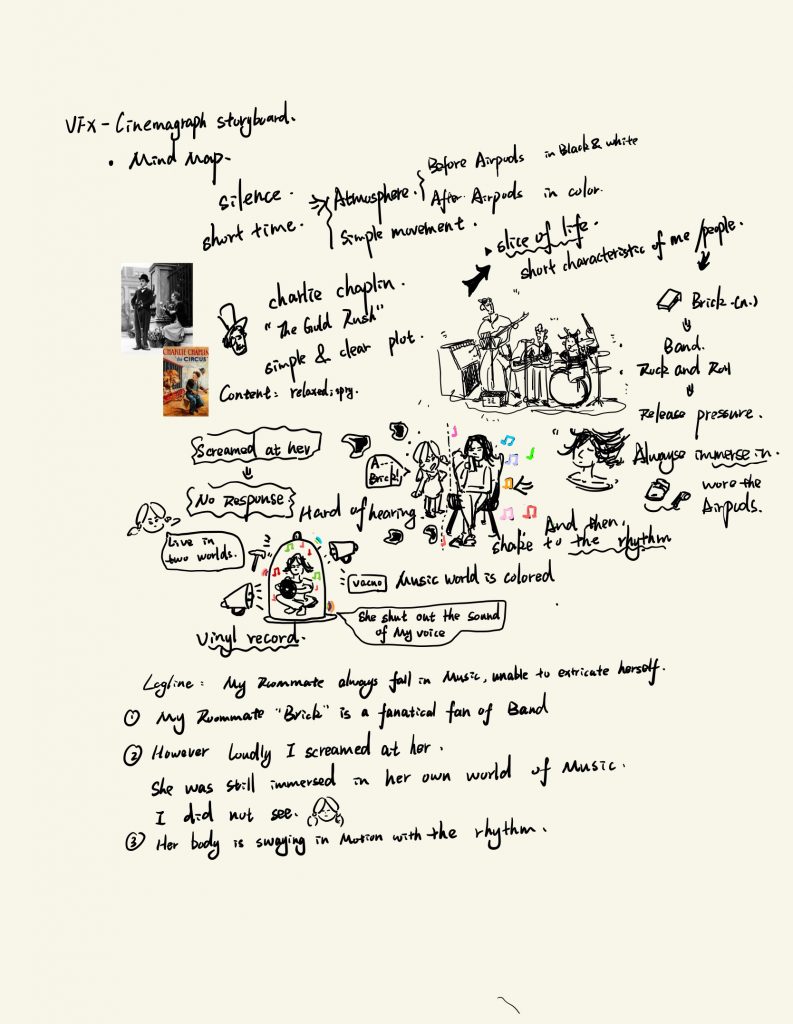 VFX - Cinemagraph storyboard.
• Mind Map.
silence. ⇒ Atmosphere. { Before Airpods in Black & white
After Airpods in color.
short time. Simple movement.
▸ slice of life.
short characteristic of me / people.
charlie chaplin.
"The Gold Rush"
simple & clear plot.
Content: relaxed; spry.
CHARLIE CHAPLIN
the CIRCUS
Brick (n.)
Band.
• Rock and Roll
Release pressure.
Always immerse in.
wore the
Airpods.
Screamed at her
No Response
A---
Brick!
Hard of hearing
And then,
shake to the rhythm
Live in
two worlds.
vacuo
Music world is colored
She shut out the sound
of My voice
Vinyl record.
Logline: My Roommate always fall in Music, unable to extricate herself.
① My Roommate "Brick" is a fanatical fan of Band
② However loudly I screamed at her.
She was still immersed in her own world of Music.
I did not see.
③ Her body is swaying in Motion with the rhythm.